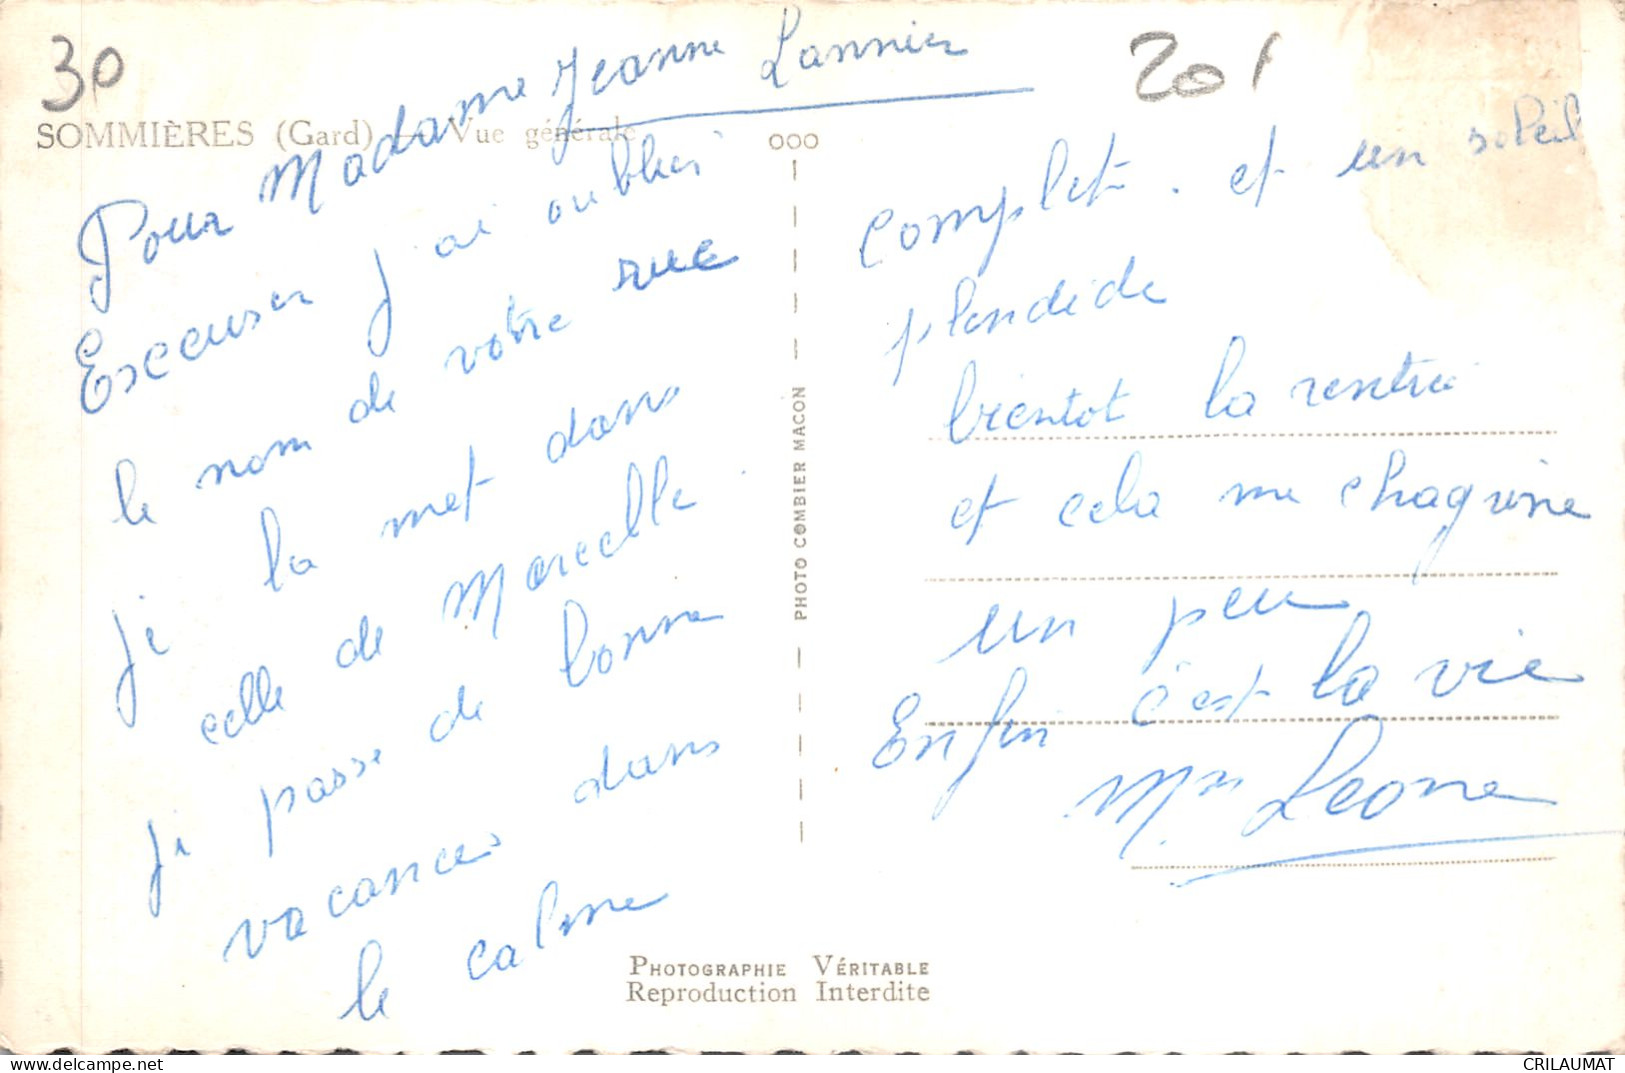 30
SOMMIÈRES (Gard) — Vue générale
Pour Madame Jeanne Lannier
Excuser j'ai oublier
le nom de votre rue
je la met dans
celle de Marcelle
je passe de bonne
vacances dans
le calme
000
PHOTO COMBIER MACON
20f
complet. et un soleil
plendide
bientot la rentrée
et cela me chagrine
un peu
Enfin c'est la vie
Mme Leone
PHOTOGRAPHIE VÉRITABLE
Reproduction Interdite
CRILAUMAT